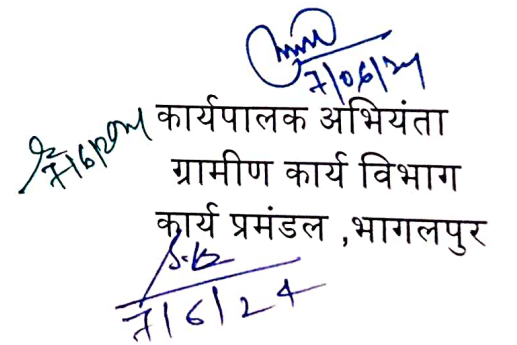 7/06/24
7/6/2024
कार्यपालक अभियंता
ग्रामीण कार्य विभाग
कार्य प्रमंडल ,भागलपुर
7/6/24